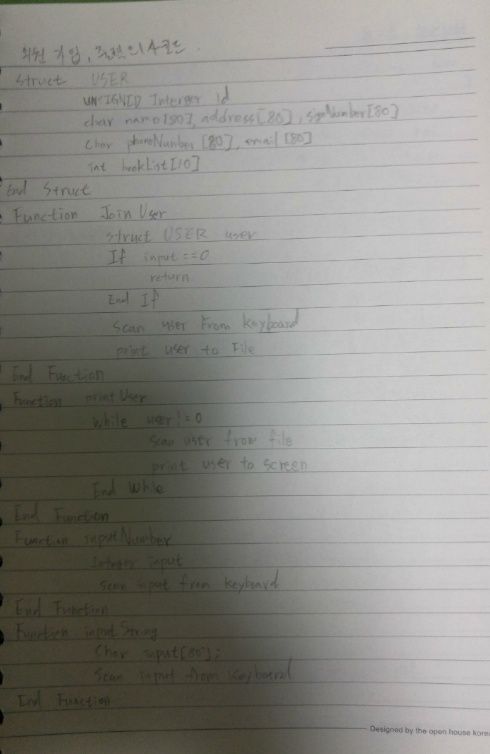 회원 가입, 회원 의사코드.
struct USER
UNSIGNID Interger id
char name[80], address[80], signNumber[80]
Char phoneNumber[80], email[80]
int bookList[10]
End Struct
Function Join User
struct USER user
If input ==0
return
End If
scan user From keyboard
print user to File
End Function
Function print User
while user!=0
scan user from file
print user to screen
End While
End Function
Function inputNumber
Interger input
scan input from keyboard
End Function
Function input String
Char input[80];
Scan input from keyboard
End Function
Designed by the open house korea